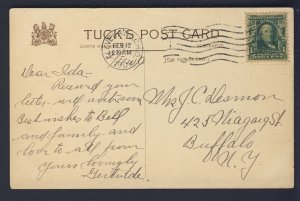 TUCK'S POST CARD
FEB 12
Dear Ida-
Received your
letter and
Best wishes to Bell
and family and
love to all from
Yours lovingly
Gertrude.
Mrs J C Desmon
425 Niagara St
Buffalo
N.Y